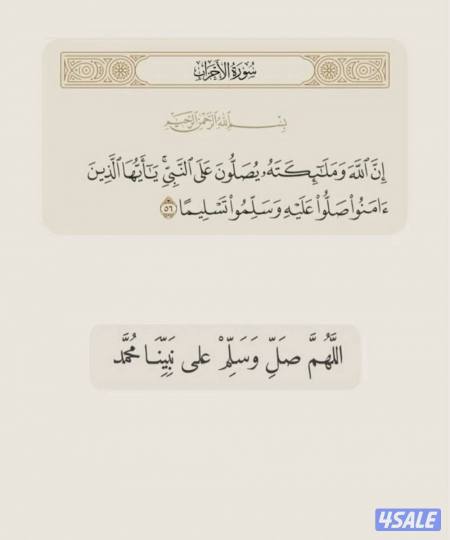 سُورَةُ الأَحْزَابِ
بِسْمِ اللَّهِ الرَّحْمَٰنِ الرَّحِيمِ
إِنَّ ٱللَّهَ وَمَلَـٰٓئِكَتَهُۥ يُصَلُّونَ عَلَى ٱلنَّبِيِّۚ يَـٰٓأَيُّهَا ٱلَّذِينَ
ءَامَنُوا۟ صَلُّوا۟ عَلَيْهِ وَسَلِّمُوا۟ تَسْلِيمًا ٥٦
اللَّهُمَّ صَلِّ وَسَلِّمْ على نَبِيِّنَا مُحَمَّد
4SALE